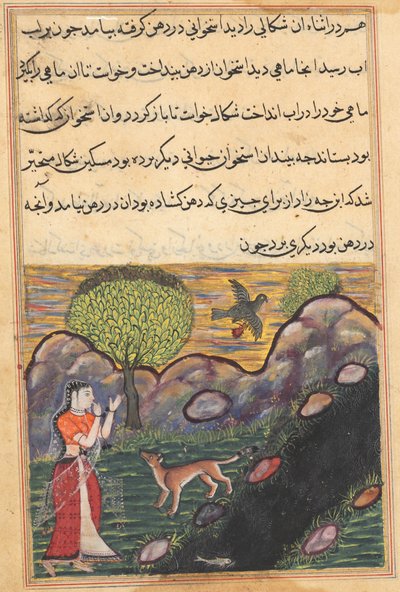 هم در اثناء آن شکالی را دید استخوانی در دهن کرفته بیامد چون بر لب
اب رسید انجا ماهی دید استخوان از دهن بینداخت و خواست تا ان ماهی را بکیرد
ماهی خود را در اب انداخت شکال خواست تا باز کردد و ان استخوان که کذاشته
بود بستاند چه بیند ان استخوان حیوانی دیکر برده بود مسکین شکال متحیر
شد که این چه راز از برای چیزی که دهن کشاده بود ان در دهن نیامد و آنچه
در دهن بود دیکری برد چون